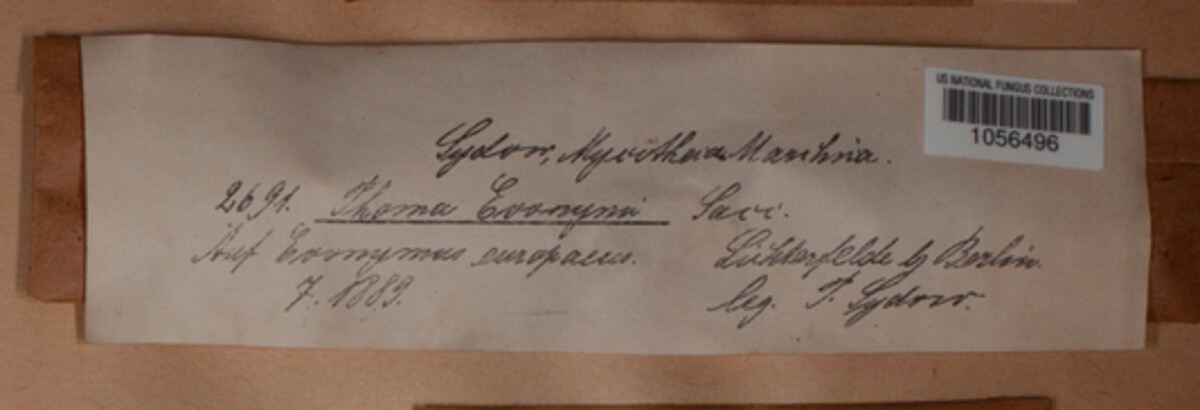 US NATIONAL FUNGUS COLLECTIONS
1056496
Sydow, Mycotheca Marchica.
2691. Phoma Evonymi Sacc.
Auf Evonymus europaeus. Lichterfelde b Berlin.
7. 1889. leg. P. Sydow.